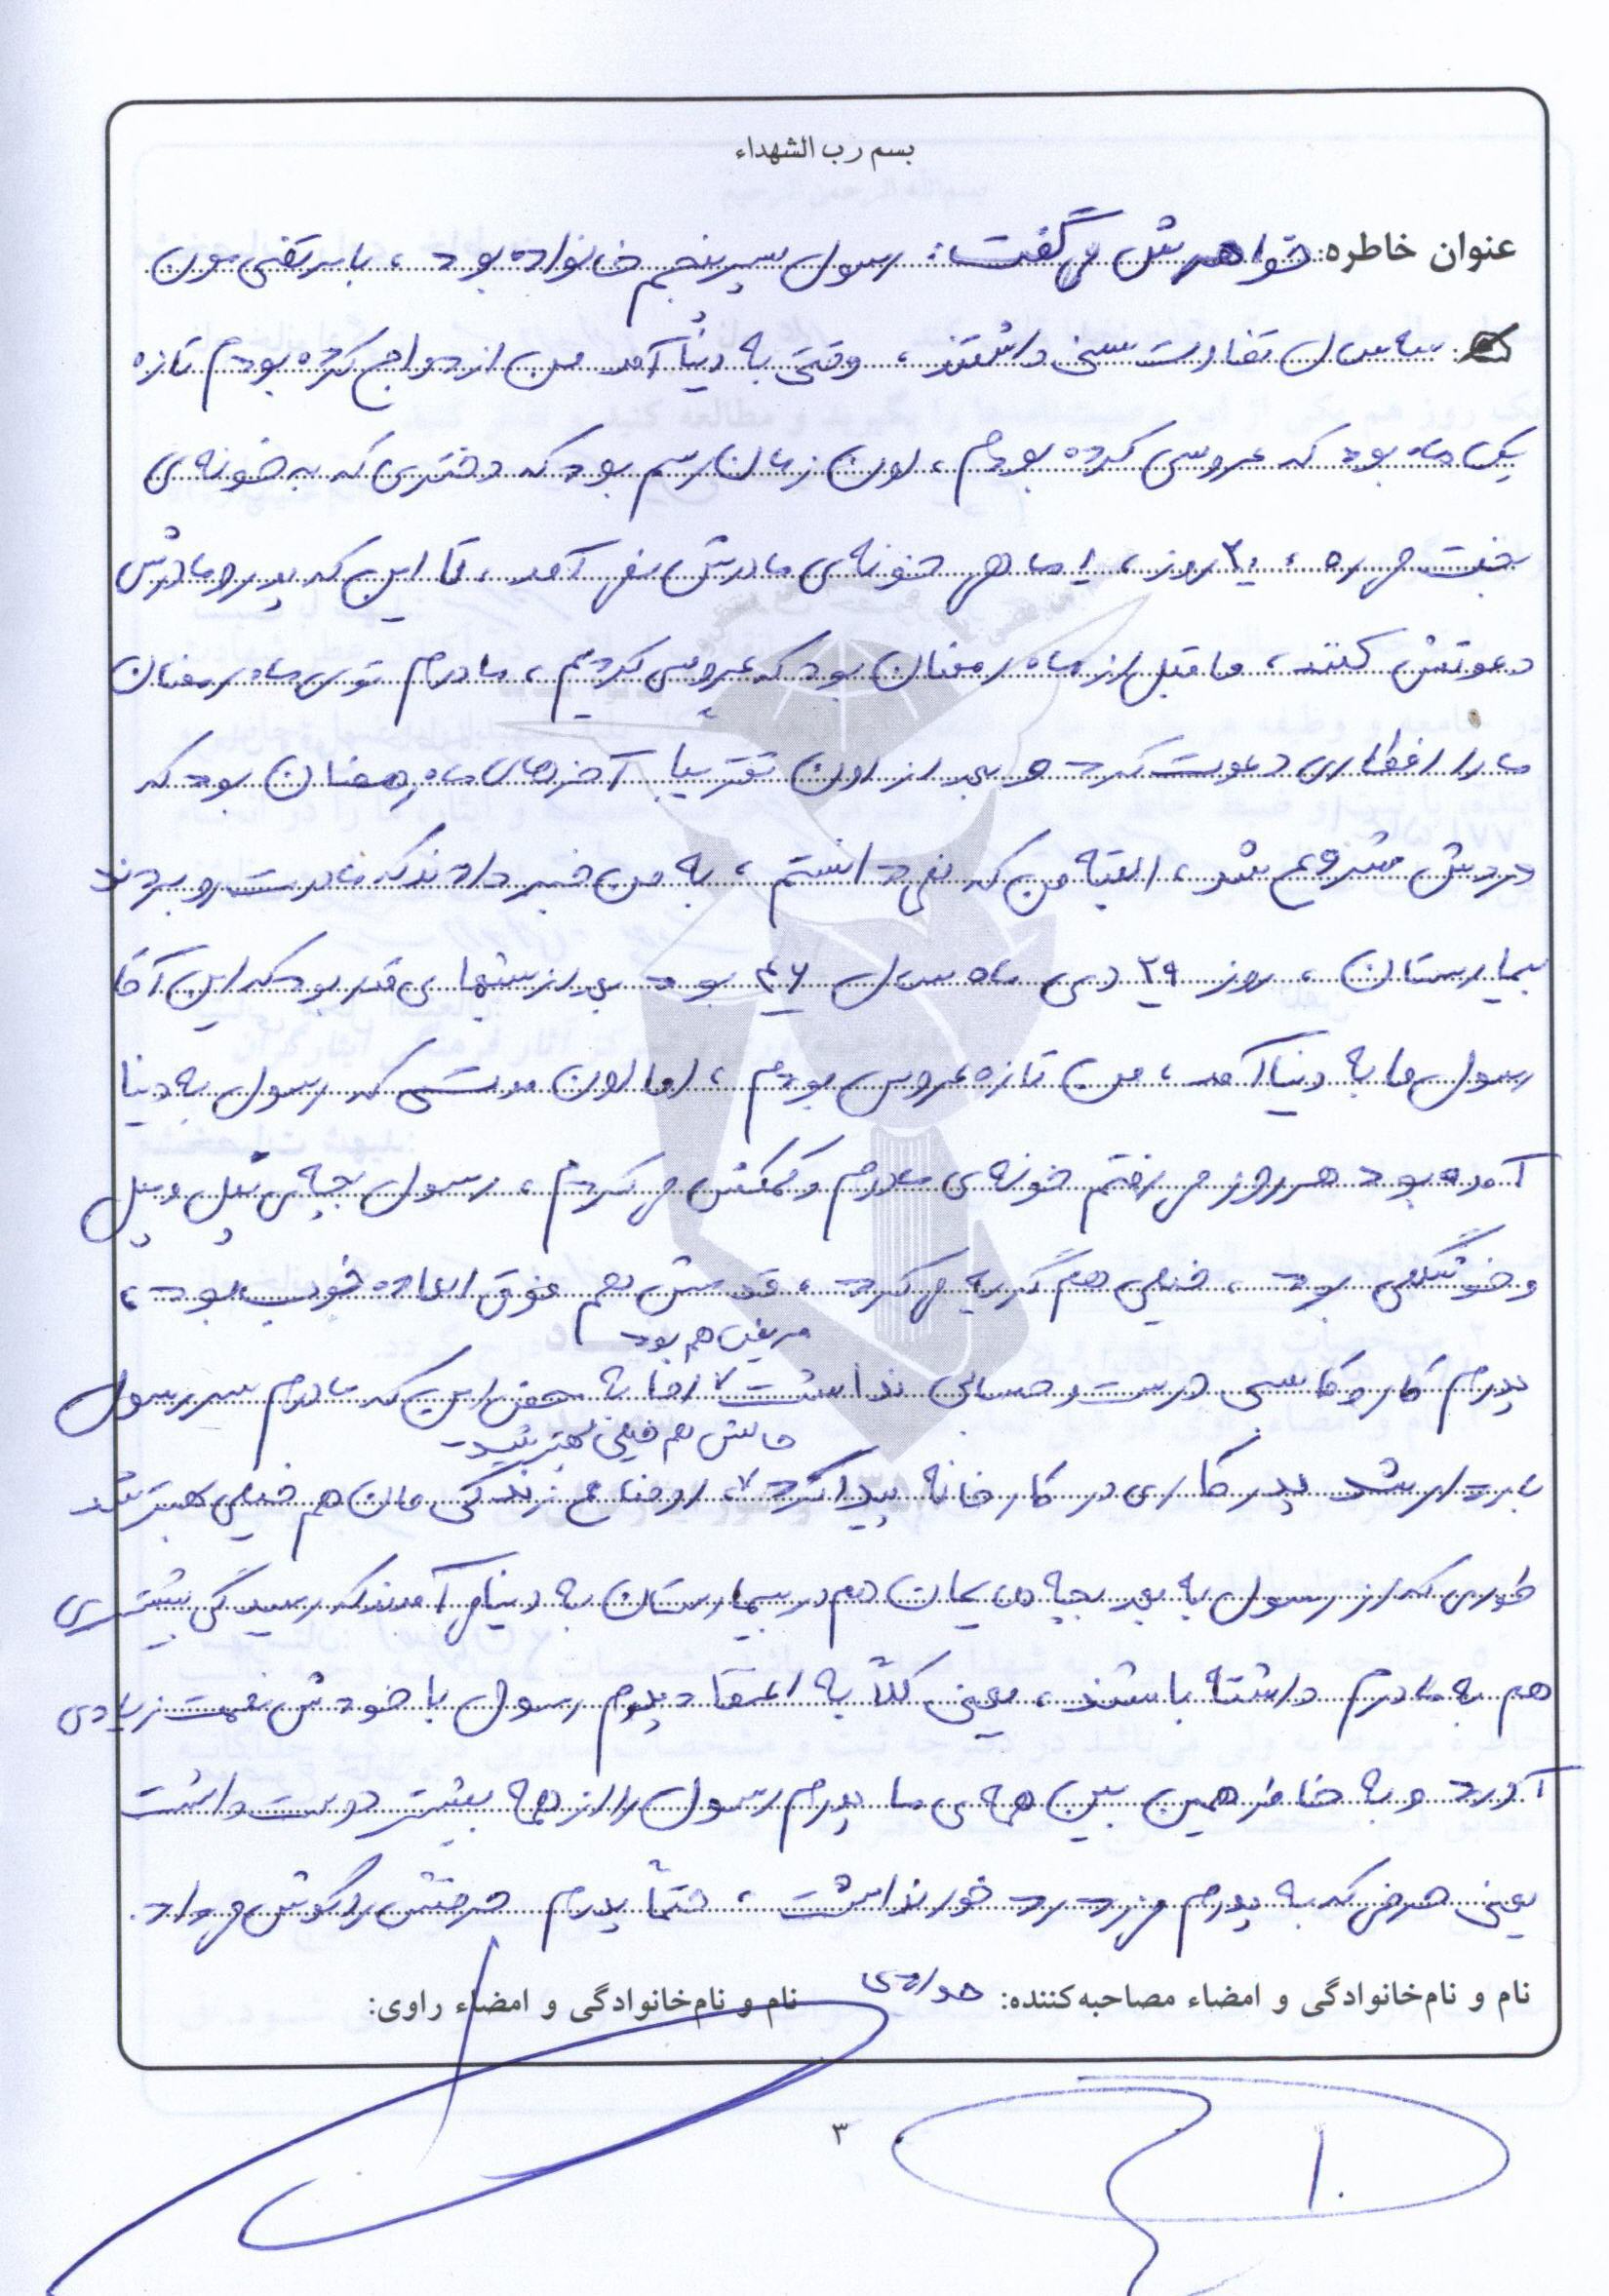 بسم رب الشهداء
عنوان خاطره: خواهرش می گفت: رسول پسر پنجم خانواده بود، با مرتضی مون
سه سال تفاوت سنی داشتند، وقتی به دنیا آمد من ازدواج کرده بودم تازه
یک ماه بود که عروسی کرده بودم، اون زمان رسم بود که دختری که به خونه ی
بخت می ره، ۲۰ روز، ۱ ماهی خونه ی مادرش نمی آمد، تا این که پدر و مادرش
دعوتش کنند، ما قبل از ماه رمضان بود که عروسی کردیم، مادرم توی ماه رمضان
ما را افطاری دعوت کرد و بعد از اون تقریبا آخرهای ماه رمضان بود که
دردش شروع شد، البته من که نمی دانستم، به من خبر دادند که مادرت رو بردند
بیمارستان، روز ۲۹ دی ماه سال ۴۶ بود بعد از شبهای قدر بود که این آقا
رسول ما به دنیا آمد، من تازه عروس بودم، اما اون مدتی که رسول به دنیا
آمده بود هر روز می رفتم خونه ی مادرم و کمکش می کردم، رسول بچه ی تپل و مپل
و خوشگلی بود، خیلی هم گریه می کرد، قدمش هم فوق العاده خوب بود،
مریض هم بود
پدرم کار و کاسبی درست و حسابی نداشت ۷ اما به محض این که مادرم سر رسول
حالش هم خیلی بهتر شد-
باردار شد پدر کاری در کارخانه پیدا کرد ۷، اوضاع زندگی مان هم خیلی بهتر شد
طوری که از رسول به بعد بچه های مان هم در بیمارستان به دنیا می آمدند که رسیدگی بیشتری
هم به مادرم داشته باشند، یعنی کلاً به اعتقاد پدرم رسول با خودش نعمت زیادی
آورد و به خاطر همین بین همه ی ما پدرم رسول را از همه بیشتر دوست داشت
یعنی حرفی که به پدرم می زد رد خور نداشت، حتماً پدرم حرفش را گوش می داد.
نام و نام‌خانوادگی و امضاء مصاحبه‌کننده: نام و نام‌خانوادگی و امضاء راوی:
۳